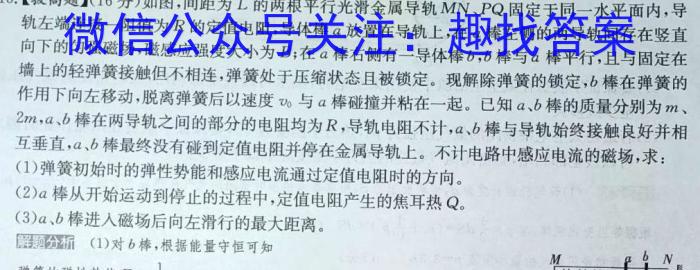 (16分)如图,间距为L的两根平行光滑金属导轨MN、PQ固定于同一水平面内,导
微信公众号关注：趣找答案
轨左端 的定值电阻 放置在导轨上, 存在竖直
向下的 大小为 在a棒右侧有一导体棒b,b棒与a棒平行,且与固定在
墙上的轻弹簧接触但不相连,弹簧处于压缩状态且被锁定。现解除弹簧的锁定,b棒在弹簧的
作用下向左移动,脱离弹簧后以速度v₀与a棒碰撞并粘在一起。已知a、b棒的质量分别为m、
2m,a、b棒在两导轨之间的部分的电阻均为R,导轨电阻不计,a、b棒与导轨始终接触良好并相
互垂直,a、b棒最终没有碰到定值电阻并停在金属导轨上。不计电路中感应电流的磁场,求:
(1)弹簧初始时的弹性势能和感应电流通过定值电阻时的方向。
(2)a棒从开始运动到停止的过程中,定值电阻产生的焦耳热Q。
(3)a、b棒进入磁场后向左滑行的最大距离。
解题分析 (1)对b棒,根据能量守恒可知
M a b N